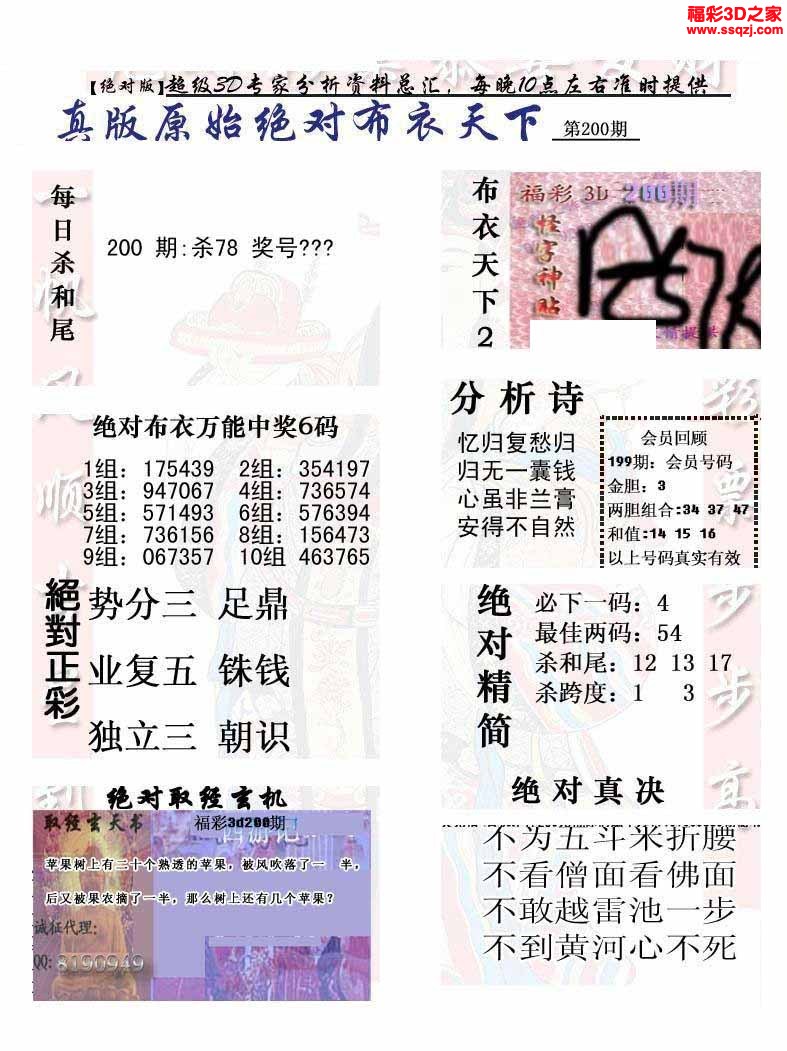 福彩3D之家
www.ssqzj.com
【绝对版】超级3D专家分析资料总汇，每晚10点左右准时提供
真版原始绝对布衣天下 第200期
每日杀和尾
200 期:杀78 奖号???
布衣天下2
福彩 3D 200期
怪字神贴
提供
绝对布衣万能中奖6码
1组：175439 2组：354197
3组：947067 4组：736574
5组：571493 6组：576394
7组：736156 8组：156473
9组：067357 10组 463765
分析诗
忆归复愁归
归无一囊钱
心虽非兰膏
安得不自然
会员回顾
199期：会员号码
金胆：3
两胆组合:34 37 47
和值:14 15 16
以上号码真实有效
絕對正彩
势分三 足鼎
业复五 铢钱
独立三 朝识
绝对精简
必下一码：4
最佳两码：54
杀和尾：12 13 17
杀跨度：1 3
绝对取经玄机
取经玄天书 福彩3d200期
苹果树上有二十个熟透的苹果，被风吹落了一 半，
后又被果农摘了一半，那么树上还有几个苹果？
诚征代理：
QQ: 8190949
绝对真决
不为五斗米折腰
不看僧面看佛面
不敢越雷池一步
不到黄河心不死